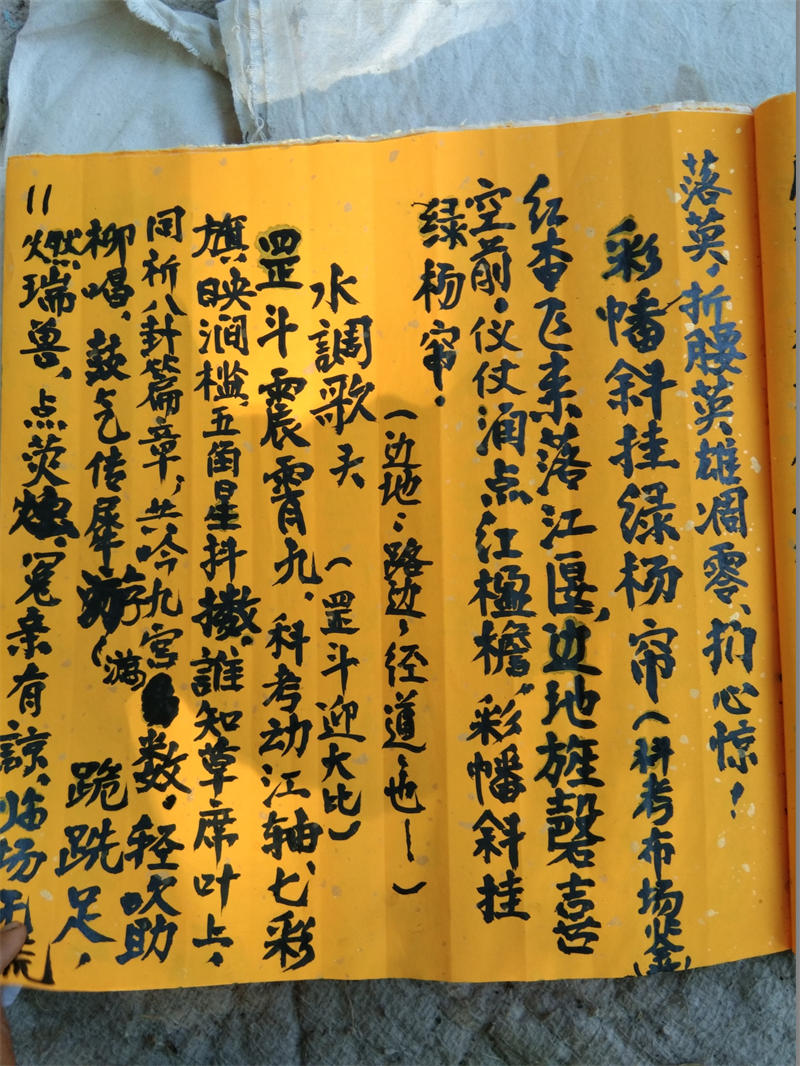 落英，折腰英雄凋零、扪心惊！
彩幡斜挂绿杨帘（科考布场鉴）
红杏飞来落江匽，边地旌磬喜
空前。仪仗润点红楹檐，彩幡斜挂
绿杨帘。
（边地：路边，径道也）
水調歌天（罡斗迎大比）
罡斗震霄九，科考动江轴、七彩
旗，映涧槛，五笛星抖擞，誰知草席叶上，
同祈八卦篇章，共吟九宫数，轻吹助
柳唱，鼓气传犀游（满 跪跣足，
燃瑞兽、点荧烛，冤亲有諒，临场